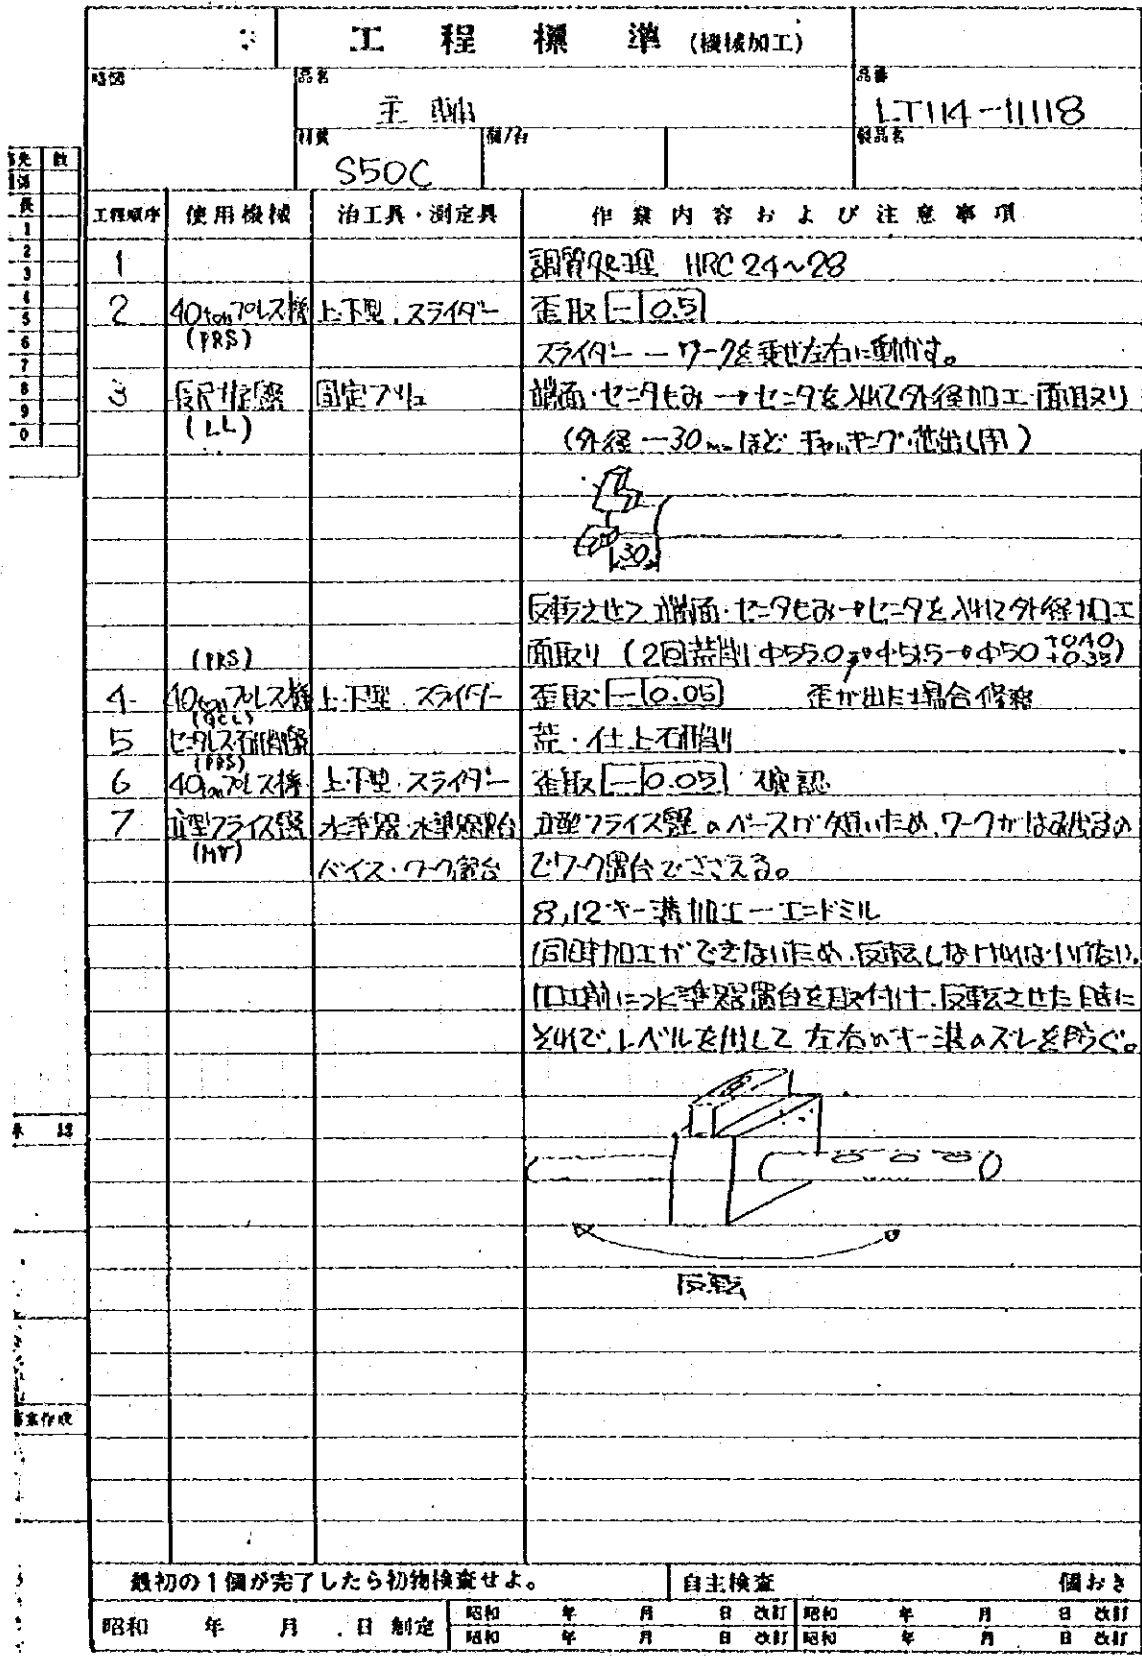 工程標準 (機械加工)
略図
品名
主軸
品番
LT114-11118
材質
S50C
個/台
製品名
工程順序 使用機械 治工具・測定具 作業内容および注意事項
1 調質処理 HRC 24~28
2 40tonプレス機 上・下型.スライダー 歪取 0.5
(PRS) スライダー ― ワークを乗せ左右に動かす。
3 長尺旋盤 固定ブッシュ 端面・センタもみ→センタを入れて外径加工・面取り
(LL) (外径 ―30mmほど チャッキング・芯出し用)
30
反転させて端面・センタもみ→センタを入れて外径加工
面取り (2回荒削 φ55.0→φ51.5→φ50 +0.40 +0.35)
(PRS)
4 40tonプレス機 上・下型.スライダー 歪取 0.05 歪が出た場合修整
5 センタレス研削盤 荒・仕上研削
(PRS)
6 40tonプレス機 上・下型・スライダー 歪取 0.05 確認
7 立型フライス盤 水準器・水準器置台 立型フライス盤のベースが短いため、ワークがはみ出るの
バイス・ワーク置台 でワーク置台でささえる。
8,12キー溝加工―エンドミル
同時加工ができないため、反転しなければいけない。
加工前に水準器置台を取付け、反転させた時に
それで、レベルを出して左右のキー溝のズレを防ぐ。
反転
最初の1個が完了したら初物検査せよ。 自主検査 個おき
昭和 年 月 日 制定
昭和 年 月 日 改訂 昭和 年 月 日 改訂
昭和 年 月 日 改訂 昭和 年 月 日 改訂